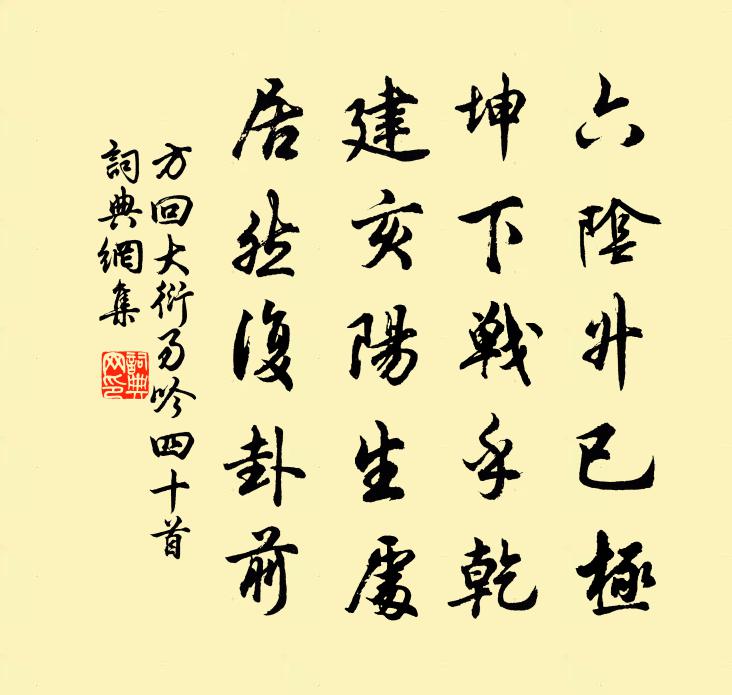 六陰升已極
坤下戰乎乾
建亥陽生處
居然復卦前
方回大衍易吟四十首
詞典網集
詞典網印